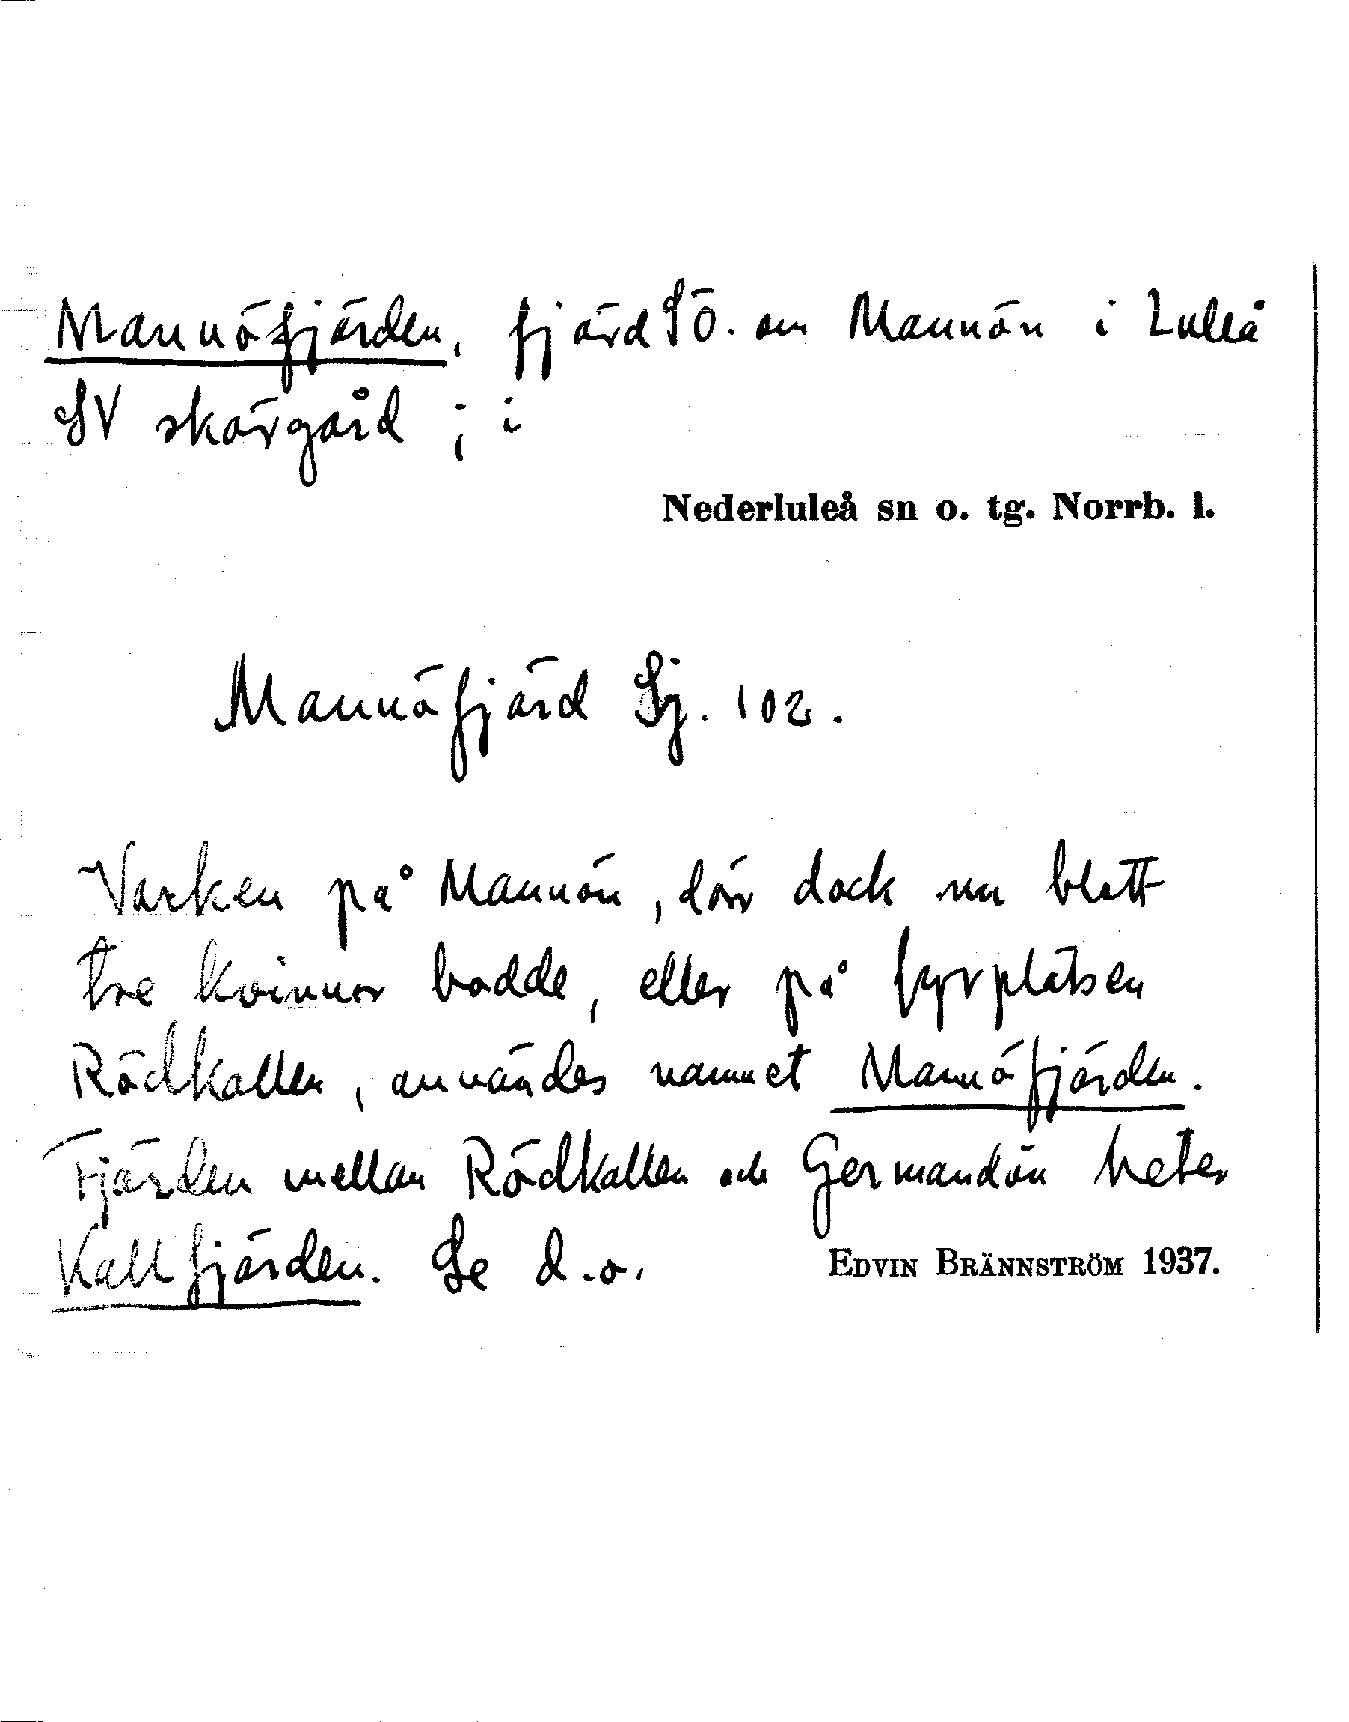 Mannöfjärden, fjärd SÖ. om Mannön i Luleå
SV skärgård ; i
Nederluleå sn o. tg. Norrb. l.
Mannöfjärd Sj. 102.
Varken på Mannön, där dock nu blott
tre kvinnor bodde, eller på fyrplatsen
Rödkallen, användes namnet Mannöfjärden.
Fjärden mellan Rödkallen och Germandön heter
Kallfjärden. Se d.o.
EDVIN BRÄNNSTRÖM 1937.